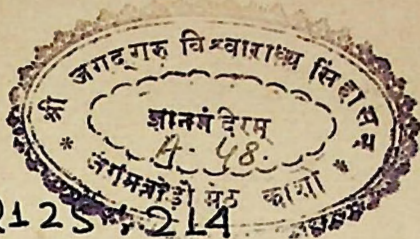 श्री जगद्गुरु विश्वाराध्य सिंहासन
ज्ञानमंदिरम्
A. 48.
* जंगमवाड़ी मठ काशी *
214